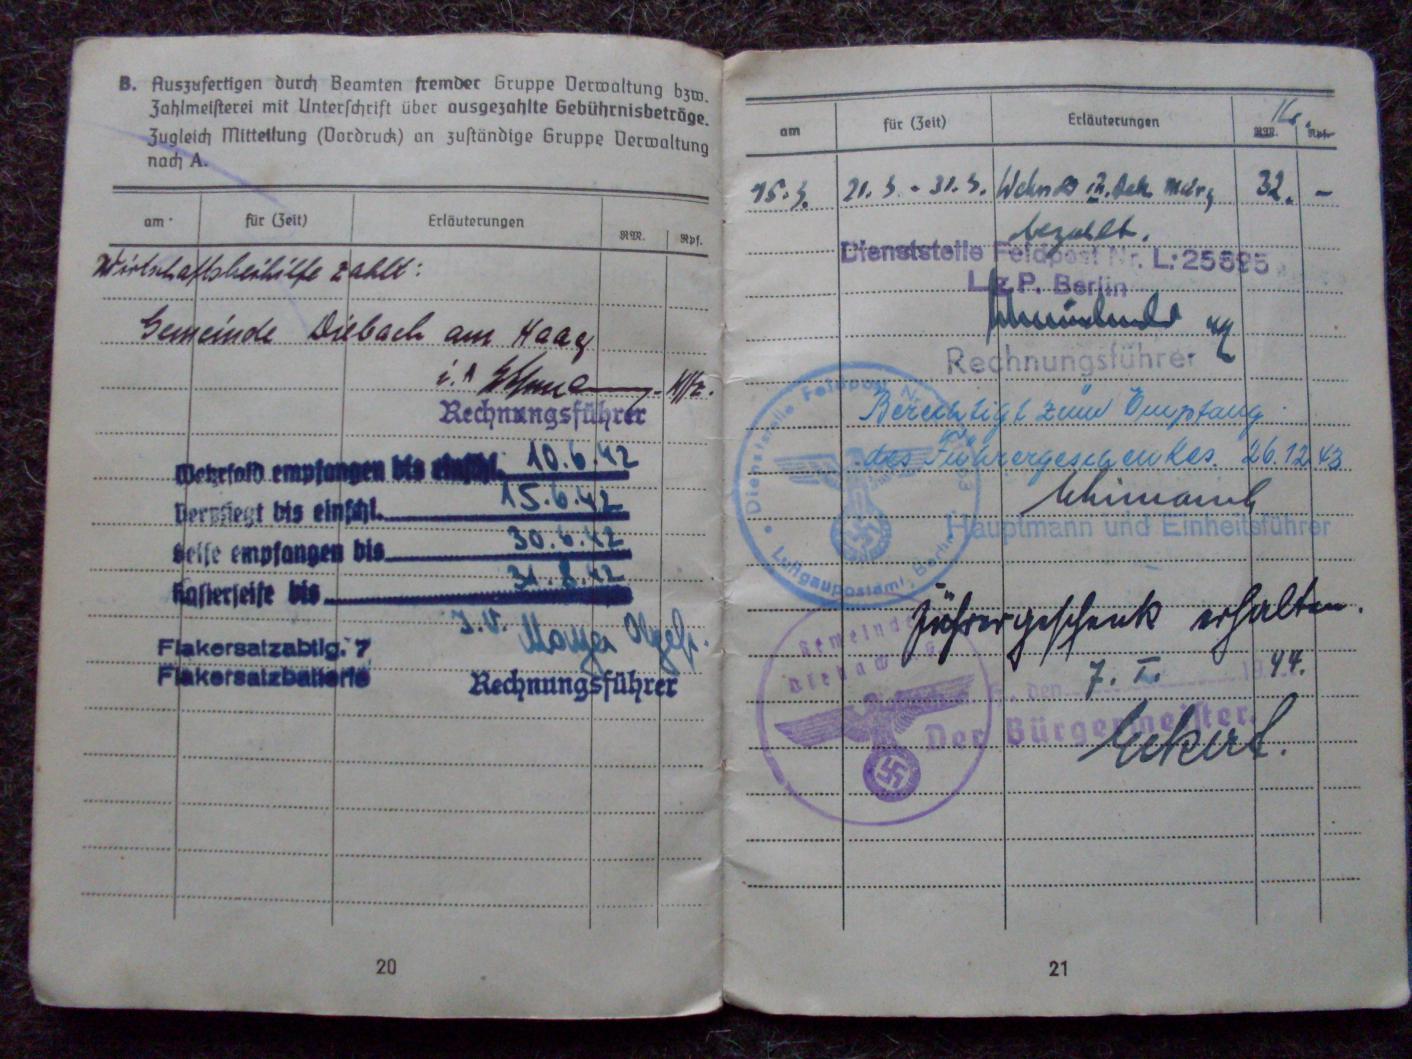 B. Auszufertigen durch Beamten fremder Gruppe Verwaltung bzw.
Zahlmeisterei mit Unterschrift über ausgezahlte Gebührnisbeträge.
Zugleich Mitteilung (Vordruck) an zuständige Gruppe Verwaltung
nach A.
am für (Zeit) Erläuterungen RM. Rpf.
Wirtschaftsbeihilfe zahlt:
Gemeinde Diebach am Haag
i.A. Uffz.
Rechnungsführer
Wehrsold empfangen bis einschl. 10.6.42
Verpflegt bis einschl. 15.6.42
Seife empfangen bis 30.6.42
Rasierseife bis 31.8.42
I.V.
Flakersatzabtlg. 7
Flakersatzbatterie
Rechnungsführer
20
am für (Zeit) Erläuterungen RM. Rpf.
15.3. 21.3. - 31.3. Wehrsold März 32. –
bezahlt.
Dienststelle Feldpost Nr. L: 25695
L.z.P. Berlin
Rechnungsführer
Dienststelle Feldpost Nr.
Luftgaupostamt Berlin
Berechtigt zum Empfang
des Führergeschenkes. 26.12.43
Hauptmann und Einheitsführer
Führergeschenk erhalten.
7. I. 44.
Gemeinde
Diebach
den 19
Der Bürgermeister.
Eckert.
21